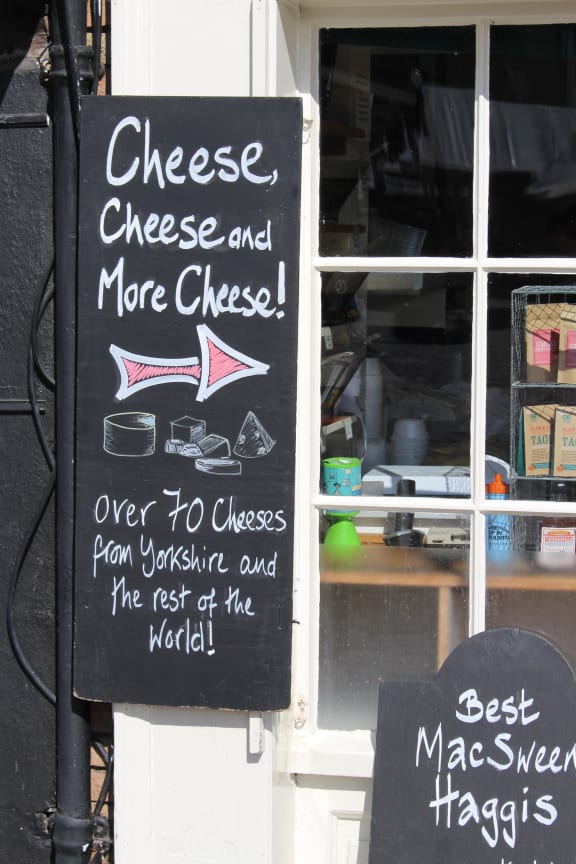 Cheese,
Cheese and
More Cheese!
Over 70 Cheeses
from Yorkshire and
the rest of the
World!
TAG
Best
MacSween
Haggis